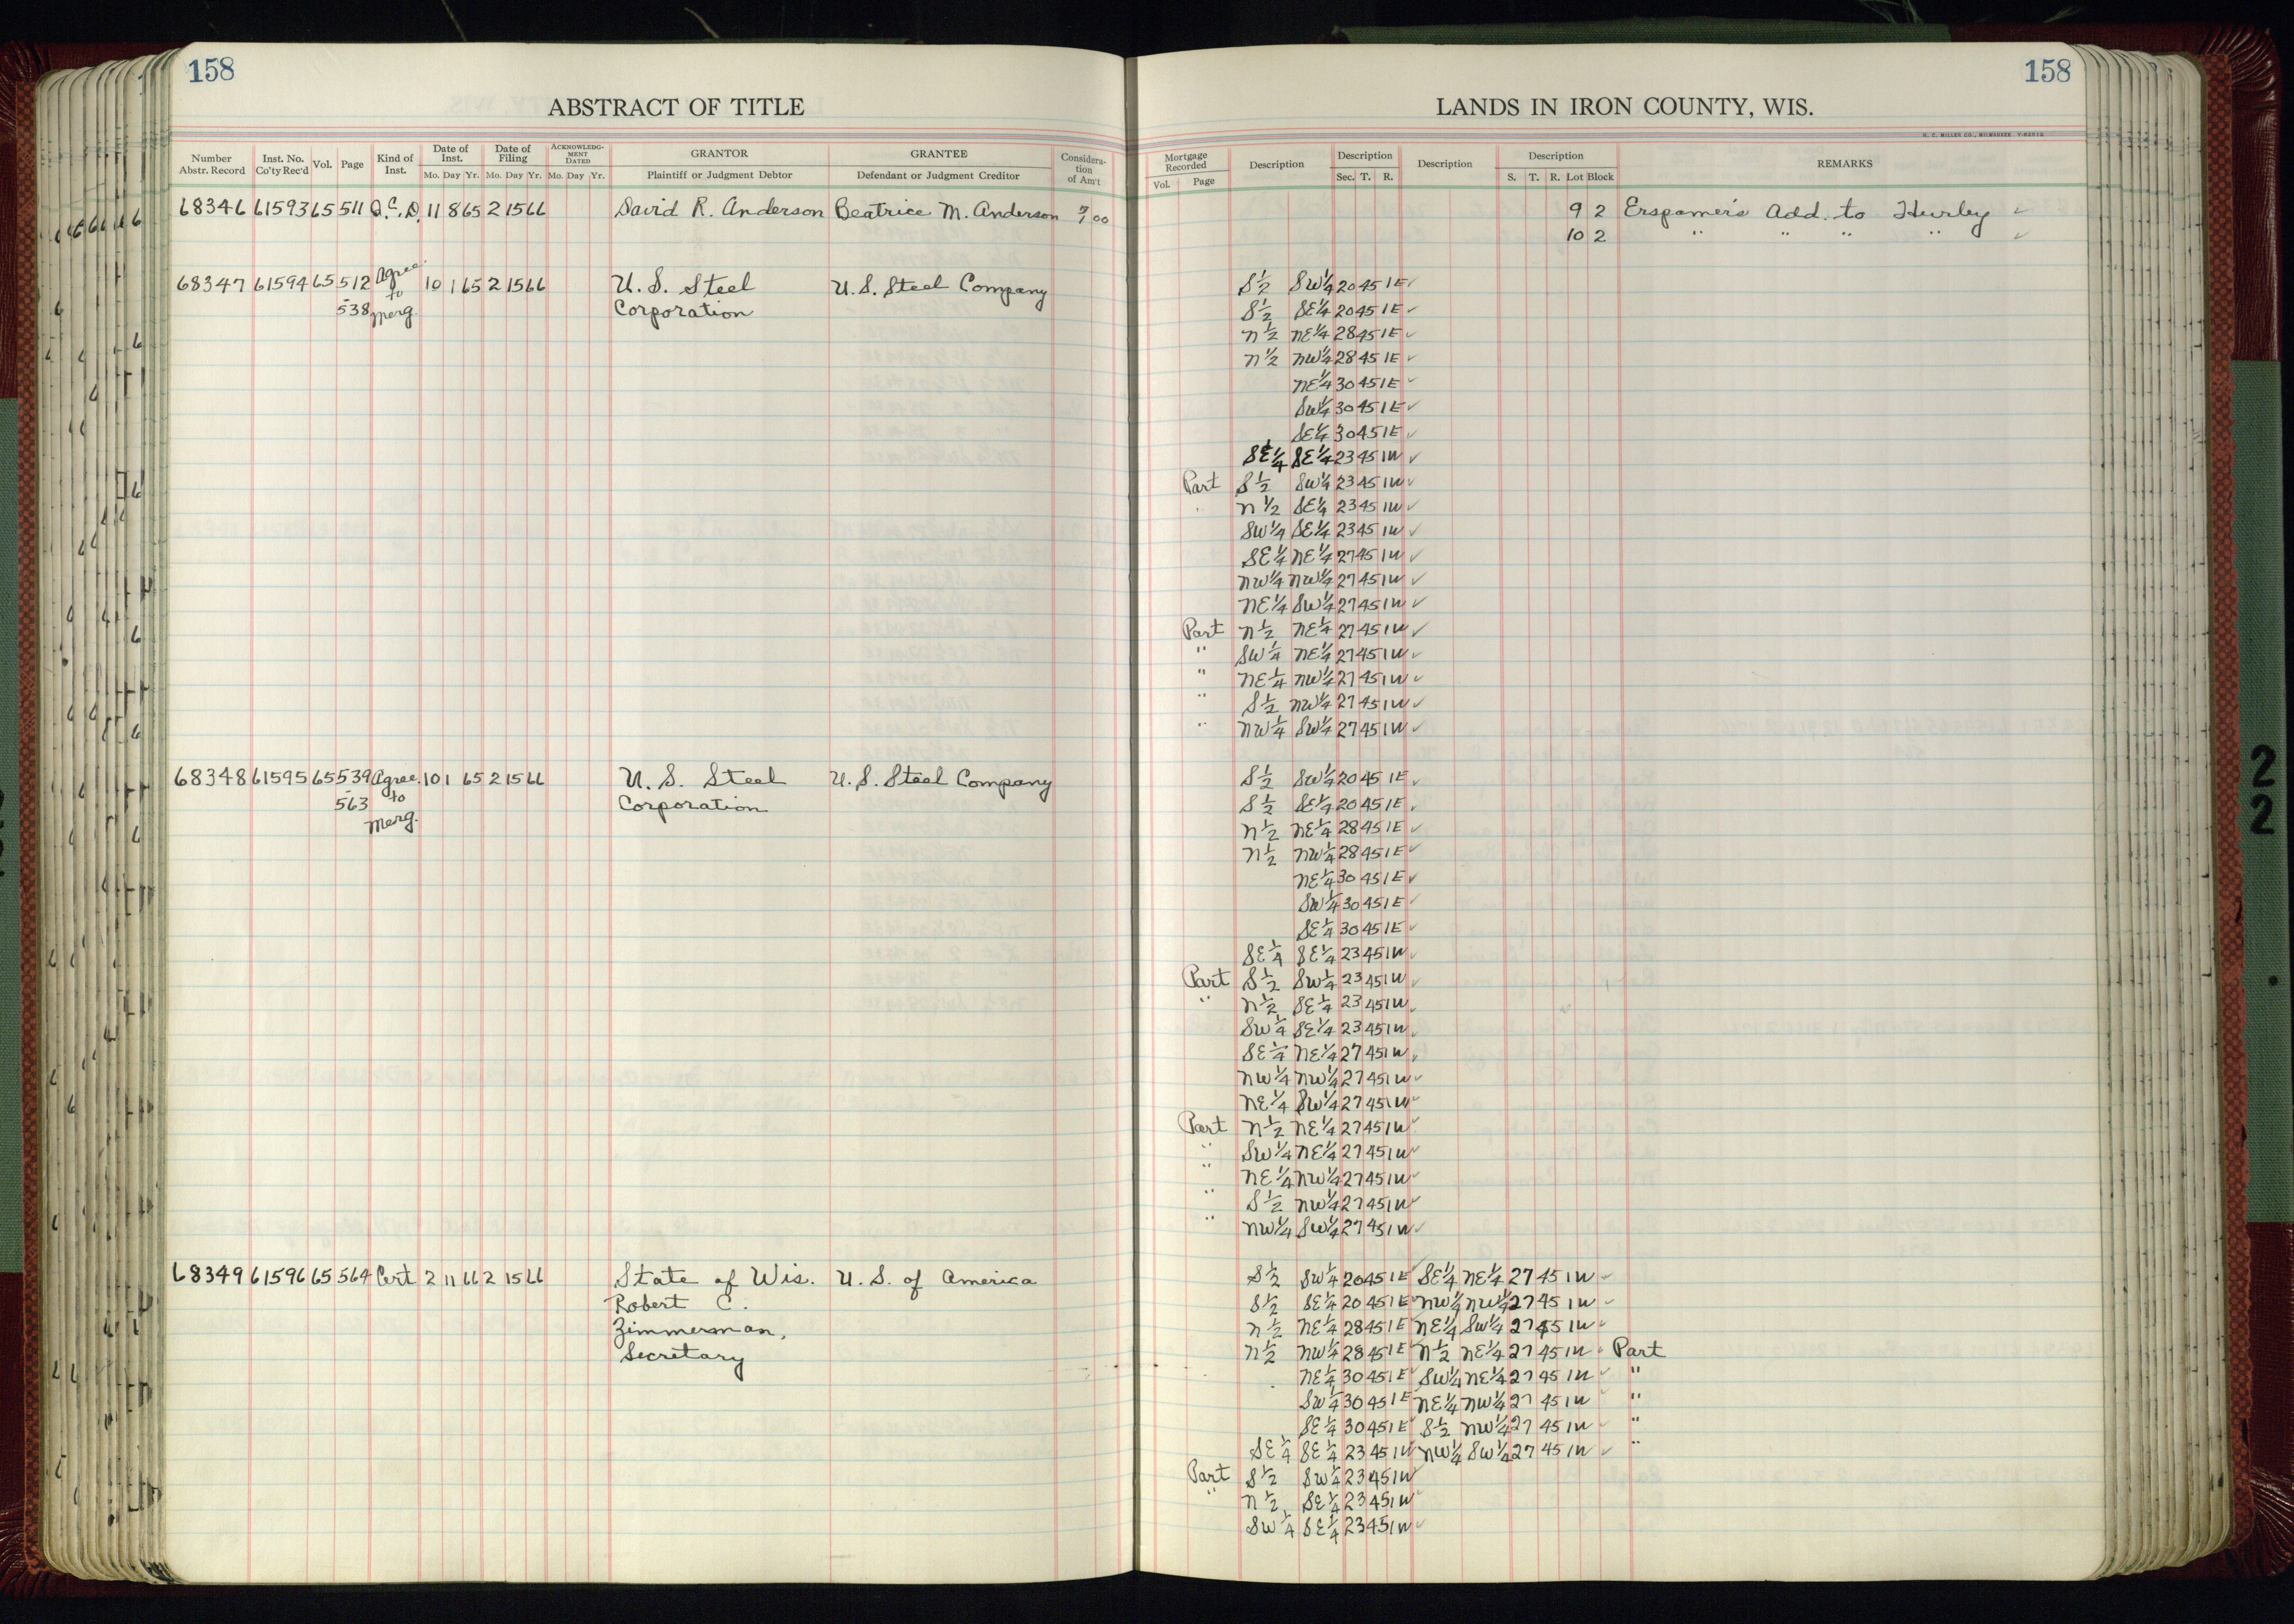 158
ABSTRACT OF TITLE
Number Abstr. Record Inst. No. Co'ty Rec'd Vol. Page Kind of Inst. Date of Inst. Mo. Day Yr. Date of Filing Mo. Day Yr. ACKNOWLEDG-MENT DATED Mo. Day Yr. GRANTOR Plaintiff or Judgment Debtor GRANTEE Defendant or Judgment Creditor Considera-tion of Am't
68346 61593 65 511 Q.C.D. 11 8 65 2 15 66 David R. Anderson Beatrice M. Anderson 00
68347 61594 65 512 Agree. 10 1 65 2 15 66 U. S. Steel U. S. Steel Company
538 to Merg. Corporation
68348 61595 65 539 Agree. 10 1 65 2 15 66 U. S. Steel U. S. Steel Company
563 to Merg. Corporation
68349 61596 65 564 Cert 2 11 66 2 15 66 State of Wis. U. S. of America
Robert C.
Zimmerman,
Secretary
158
LANDS IN IRON COUNTY, WIS.
H. C. MILLER CO., MILWAUKEE
Mortgage Recorded Vol. Page Description Description Sec. T. R. Description Description S. T. R. Lot Block REMARKS
9 2 Erspamer's Add. to Hurley ✓
10 2 " " " " ✓
S½ SW¼ 20 45 1E ✓
S½ SE¼ 20 45 1E ✓
N½ NE¼ 28 45 1E ✓
N½ NW¼ 28 45 1E ✓
NE¼ 30 45 1E ✓
SW¼ 30 45 1E ✓
SE¼ 30 45 1E ✓
SE¼ SE¼ 23 45 1W ✓
Part S½ SW¼ 23 45 1W ✓
N½ SE¼ 23 45 1W ✓
SW¼ SE¼ 23 45 1W ✓
SE¼ NE¼ 27 45 1W ✓
NW¼ NW¼ 27 45 1W ✓
NE¼ SW¼ 27 45 1W ✓
Part N½ NE¼ 27 45 1W ✓
" SW¼ NE¼ 27 45 1W ✓
" NE¼ NW¼ 27 45 1W ✓
" S½ NW¼ 27 45 1W ✓
" NW¼ SW¼ 27 45 1W ✓
S½ SW¼ 20 45 1E ✓
S½ SE¼ 20 45 1E ✓
N½ NE¼ 28 45 1E ✓
N½ NW¼ 28 45 1E ✓
NE¼ 30 45 1E ✓
SW¼ 30 45 1E ✓
SE¼ 30 45 1E ✓
SE¼ SE¼ 23 45 1W ✓
Part S½ SW¼ 23 45 1W ✓
" N½ SE¼ 23 45 1W ✓
SW¼ SE¼ 23 45 1W ✓
SE¼ NE¼ 27 45 1W ✓
NW¼ NW¼ 27 45 1W ✓
NE¼ SW¼ 27 45 1W ✓
Part N½ NE¼ 27 45 1W ✓
" SW¼ NE¼ 27 45 1W ✓
" NE¼ NW¼ 27 45 1W ✓
" S½ NW¼ 27 45 1W ✓
" NW¼ SW¼ 27 45 1W ✓
S½ SW¼ 20 45 1E SE¼ NE¼ 27 45 1W ✓
S½ SE¼ 20 45 1E NW¼ NW¼ 27 45 1W ✓
N½ NE¼ 28 45 1E NE¼ SW¼ 27 45 1W ✓
N½ NW¼ 28 45 1E N½ NE¼ 27 45 1W ✓ Part
NE¼ 30 45 1E SW¼ NE¼ 27 45 1W ✓ "
SW¼ 30 45 1E NE¼ NW¼ 27 45 1W ✓ "
SE¼ 30 45 1E S½ NW¼ 27 45 1W ✓ "
SE¼ SE¼ 23 45 1W NW¼ SW¼ 27 45 1W ✓ "
Part S½ SW¼ 23 45 1W ✓
" N½ SE¼ 23 45 1W ✓
SW¼ SE¼ 23 45 1W ✓
2
2